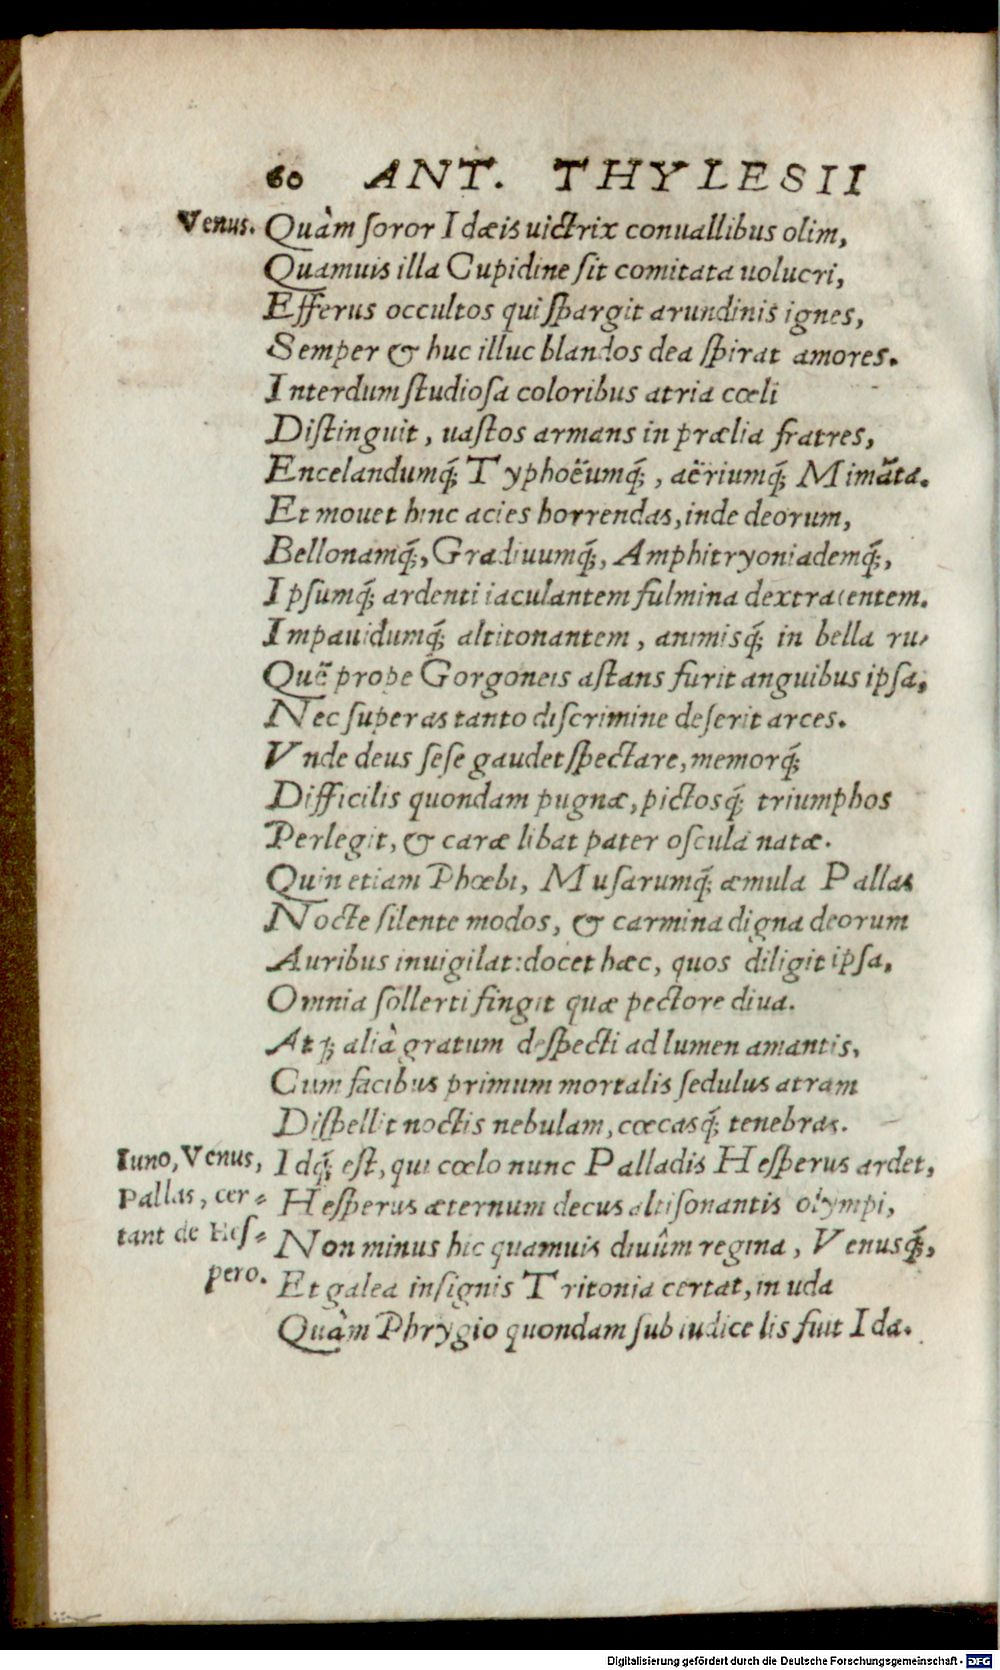 60 ANT. THYLESII
Venus. Quàm ſoror Idæis uictrix conuallibus olim,
Quamuis illa Cupidine ſit comitata uolucri,
Efferus occultos qui ſpargit arundinis ignes,
Semper & huc illuc blandos dea ſpirat amores.
Interdum ſtudioſa coloribus atria cœli
Diſtinguit, uaſtos armans in prælia fratres,
Encelandumq́; Typhoëumq́;, aëriumq́; Mimãta.
Et mouet hinc acies horrendas, inde deorum,
Bellonamq́;, Gradiuumq́;, Amphitryoniademq́;,
Ipſumq́; ardenti iaculantem fulmina dextra
Impauidumq́; altitonantem, animisq́; in bella ru- entem.
Quẽ prope Gorgoneis aſtans furit anguibus ipſa,
Nec ſuperas tanto diſcrimine deſerit arces.
Vnde deus ſeſe gaudet ſpectare, memorq́;
Difficilis quondam pugnæ, pictosq́; triumphos
Perlegit, & caræ libat pater oſcula natæ.
Quin etiam Phœbi, Muſarumq́; æmula Pallas
Nocte ſilente modos, & carmina digna deorum
Auribus inuigilat: docet hæc, quos diligit ipſa,
Omnia ſollerti fingit quæ pectore diua.
Atq́; alià gratum deſpecti ad lumen amantis,
Cum facibus primum mortalis ſedulus atram
Diſpellit noctis nebulam, cœcasq́; tenebras.
Iuno, Venus, Idq́; eſt, qui cœlo nunc Palladis Heſperus ardet,
Pallas, cer- Heſperus æternum decus altiſonantis olympi,
tant de Heſ- Non minus hic quamuis diuûm regina, Venusq́;,
pero. Et galea inſignis Tritonia certat, in uda
Quàm Phrygio quondam ſub iudice lis fuit Ida.
Digitalisierung gefördert durch die Deutsche Forschungsgemeinschaft - DFG